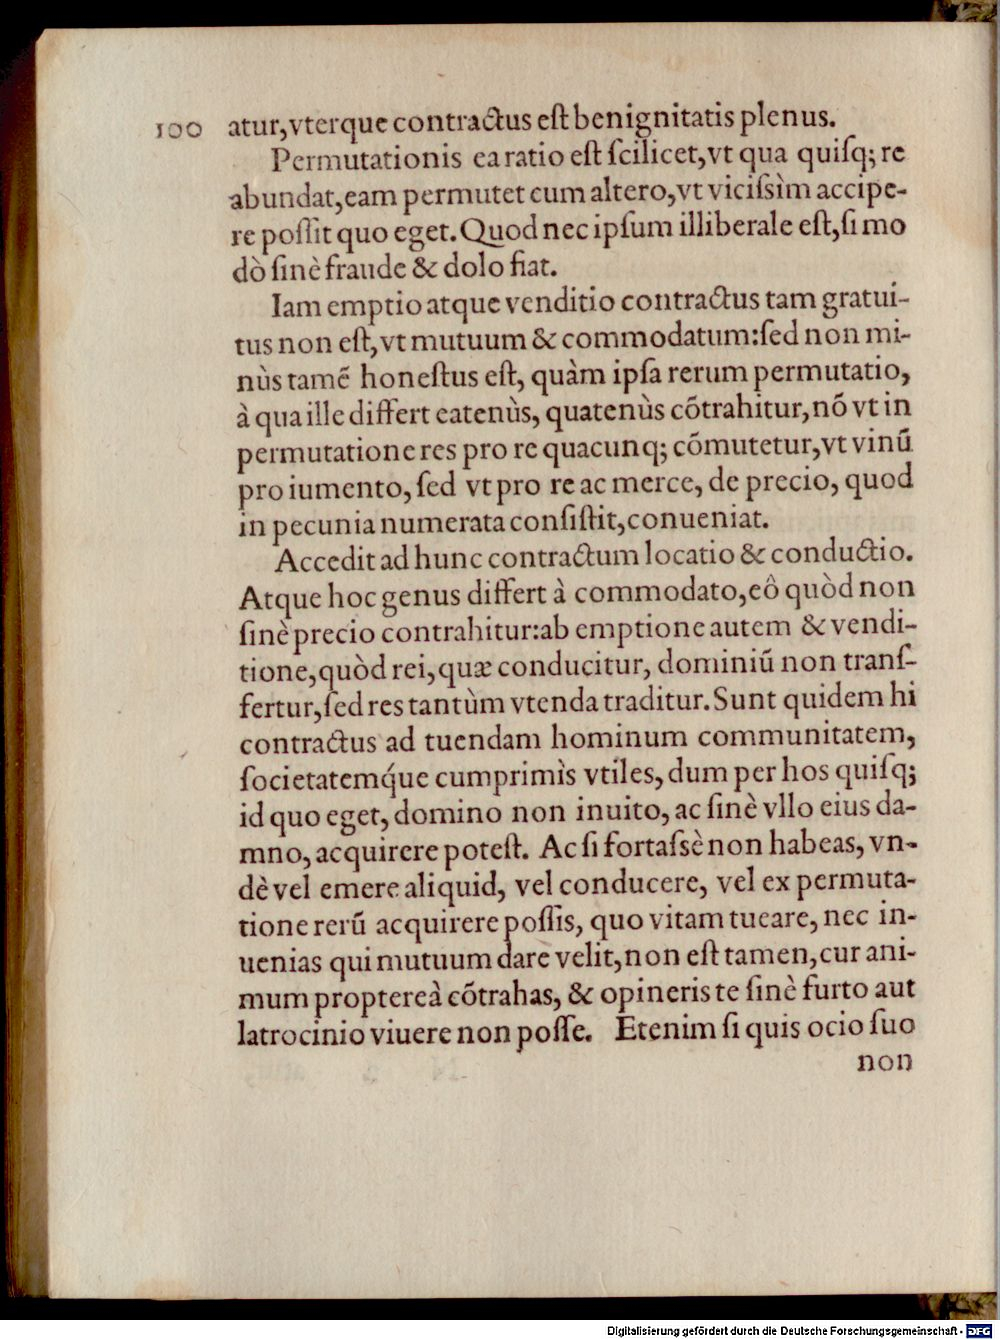 100 atur,vterque contractus eſt benignitatis plenus.
Permutationis ea ratio eſt ſcilicet,vt qua quiſq; re
abundat,eam permutet cum altero,vt viciſsìm accipe-
re poſſit quo eget. Quod nec ipſum illiberale eſt,ſi mo
dò ſinè fraude & dolo fiat.
Iam emptio atque venditio contractus tam gratui-
tus non eſt,vt mutuum & commodatum:ſed non mi-
nùs tamẽ honeſtus eſt, quàm ipſa rerum permutatio,
à qua ille differt eatenùs, quatenùs cõtrahitur,nõ vt in
permutatione res pro re quacunq; cõmutetur,vt vinũ
pro iumento, ſed vt pro re ac merce, de precio, quod
in pecunia numerata conſiſtit,conueniat.
Accedit ad hunc contractum locatio & conductio.
Atque hoc genus differt à commodato,eô quòd non
ſinè precio contrahitur:ab emptione autem & vendi-
tione,quòd rei,quæ conducitur, dominiũ non tranſ-
fertur,ſed res tantùm vtenda traditur. Sunt quidem hi
contractus ad tuendam hominum communitatem,
ſocietatemq́ue cumprimìs vtiles, dum per hos quiſq;
id quo eget, domino non inuito, ac ſinè vllo eius da-
mno, acquirere poteſt. Ac ſi fortaſsè non habeas, vn-
dè vel emere aliquid, vel conducere, vel ex permuta-
tione rerũ acquirere poſſis, quo vitam tueare, nec in-
uenias qui mutuum dare velit,non eſt tamen,cur ani-
mum proptereà cõtrahas, & opineris te ſinè furto aut
latrocinio viuere non poſſe. Etenim ſi quis ocio ſuo
non
Digitalisierung gefördert durch die Deutsche Forschungsgemeinschaft - DFG